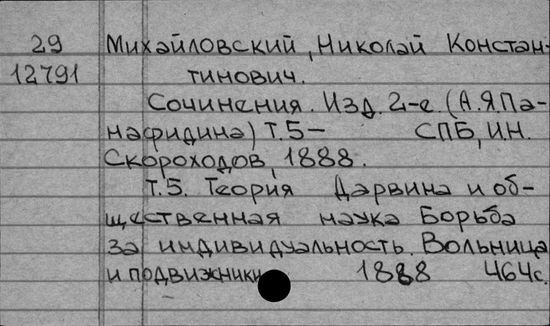 29 Михайловский, Николай Констан-
12791 тинович.
Сочинения. Изд. 2-е. (А.Я.Па-
нафидина) Т.5— СПБ, И.Н.
Скороходов, 1888.
Т.5. Теория Дарвина и об-
щественная наука Борьба
за индивидуальность. Вольница
и подвижники 1888 464с.